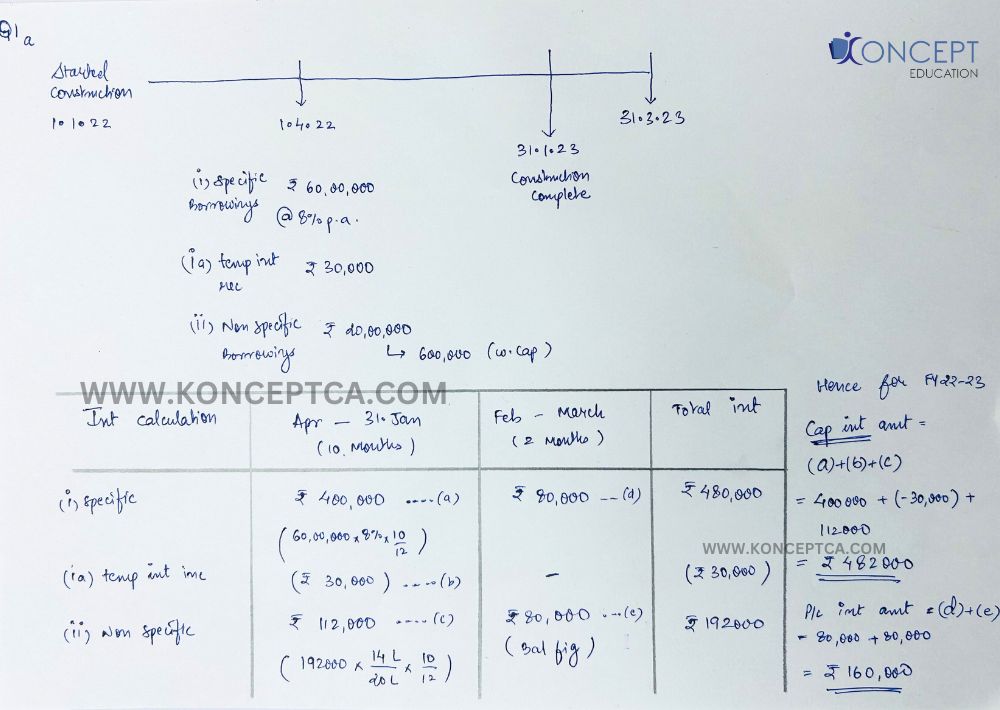 Q1a
KONCEPT
EDUCATION
Started
Construction
1.1.22
1.4.22
31.1.23
Construction
Complete
31.3.23
(i) Specific ₹ 60,00,000
Borrowings @ 8% p.a.
(ia) temp int ₹ 30,000
rec
(ii) Non Specific ₹ 20,00,000
Borrowings ↳ 600,000 (w. Cap)
WWW.KONCEPTCA.COM
Int calculation
Apr — 31. Jan
(10 Months)
Feb - March
(2 Months)
Total int
(i) Specific
₹ 400,000 ....(a)
₹ 80,000 ...(d)
₹ 480,000
(60,00,000 x 8% x 10/12)
(ia) temp int inc
(₹ 30,000) ....(b)
-
(₹ 30,000)
(ii) Non Specific
₹ 112,000 ....(c)
₹ 80,000 ...(e)
₹ 192000
(192000 x 14 L/20 L x 10/12)
(Bal fig)
Hence for FY22-23
Cap int amt =
(a)+(b)+(c)
= 400000 + (-30,000) +
112000
WWW.KONCEPTCA.COM
= ₹ 482000
P/L int amt = (d)+(e)
= 80,000 + 80,000
= ₹ 160,000